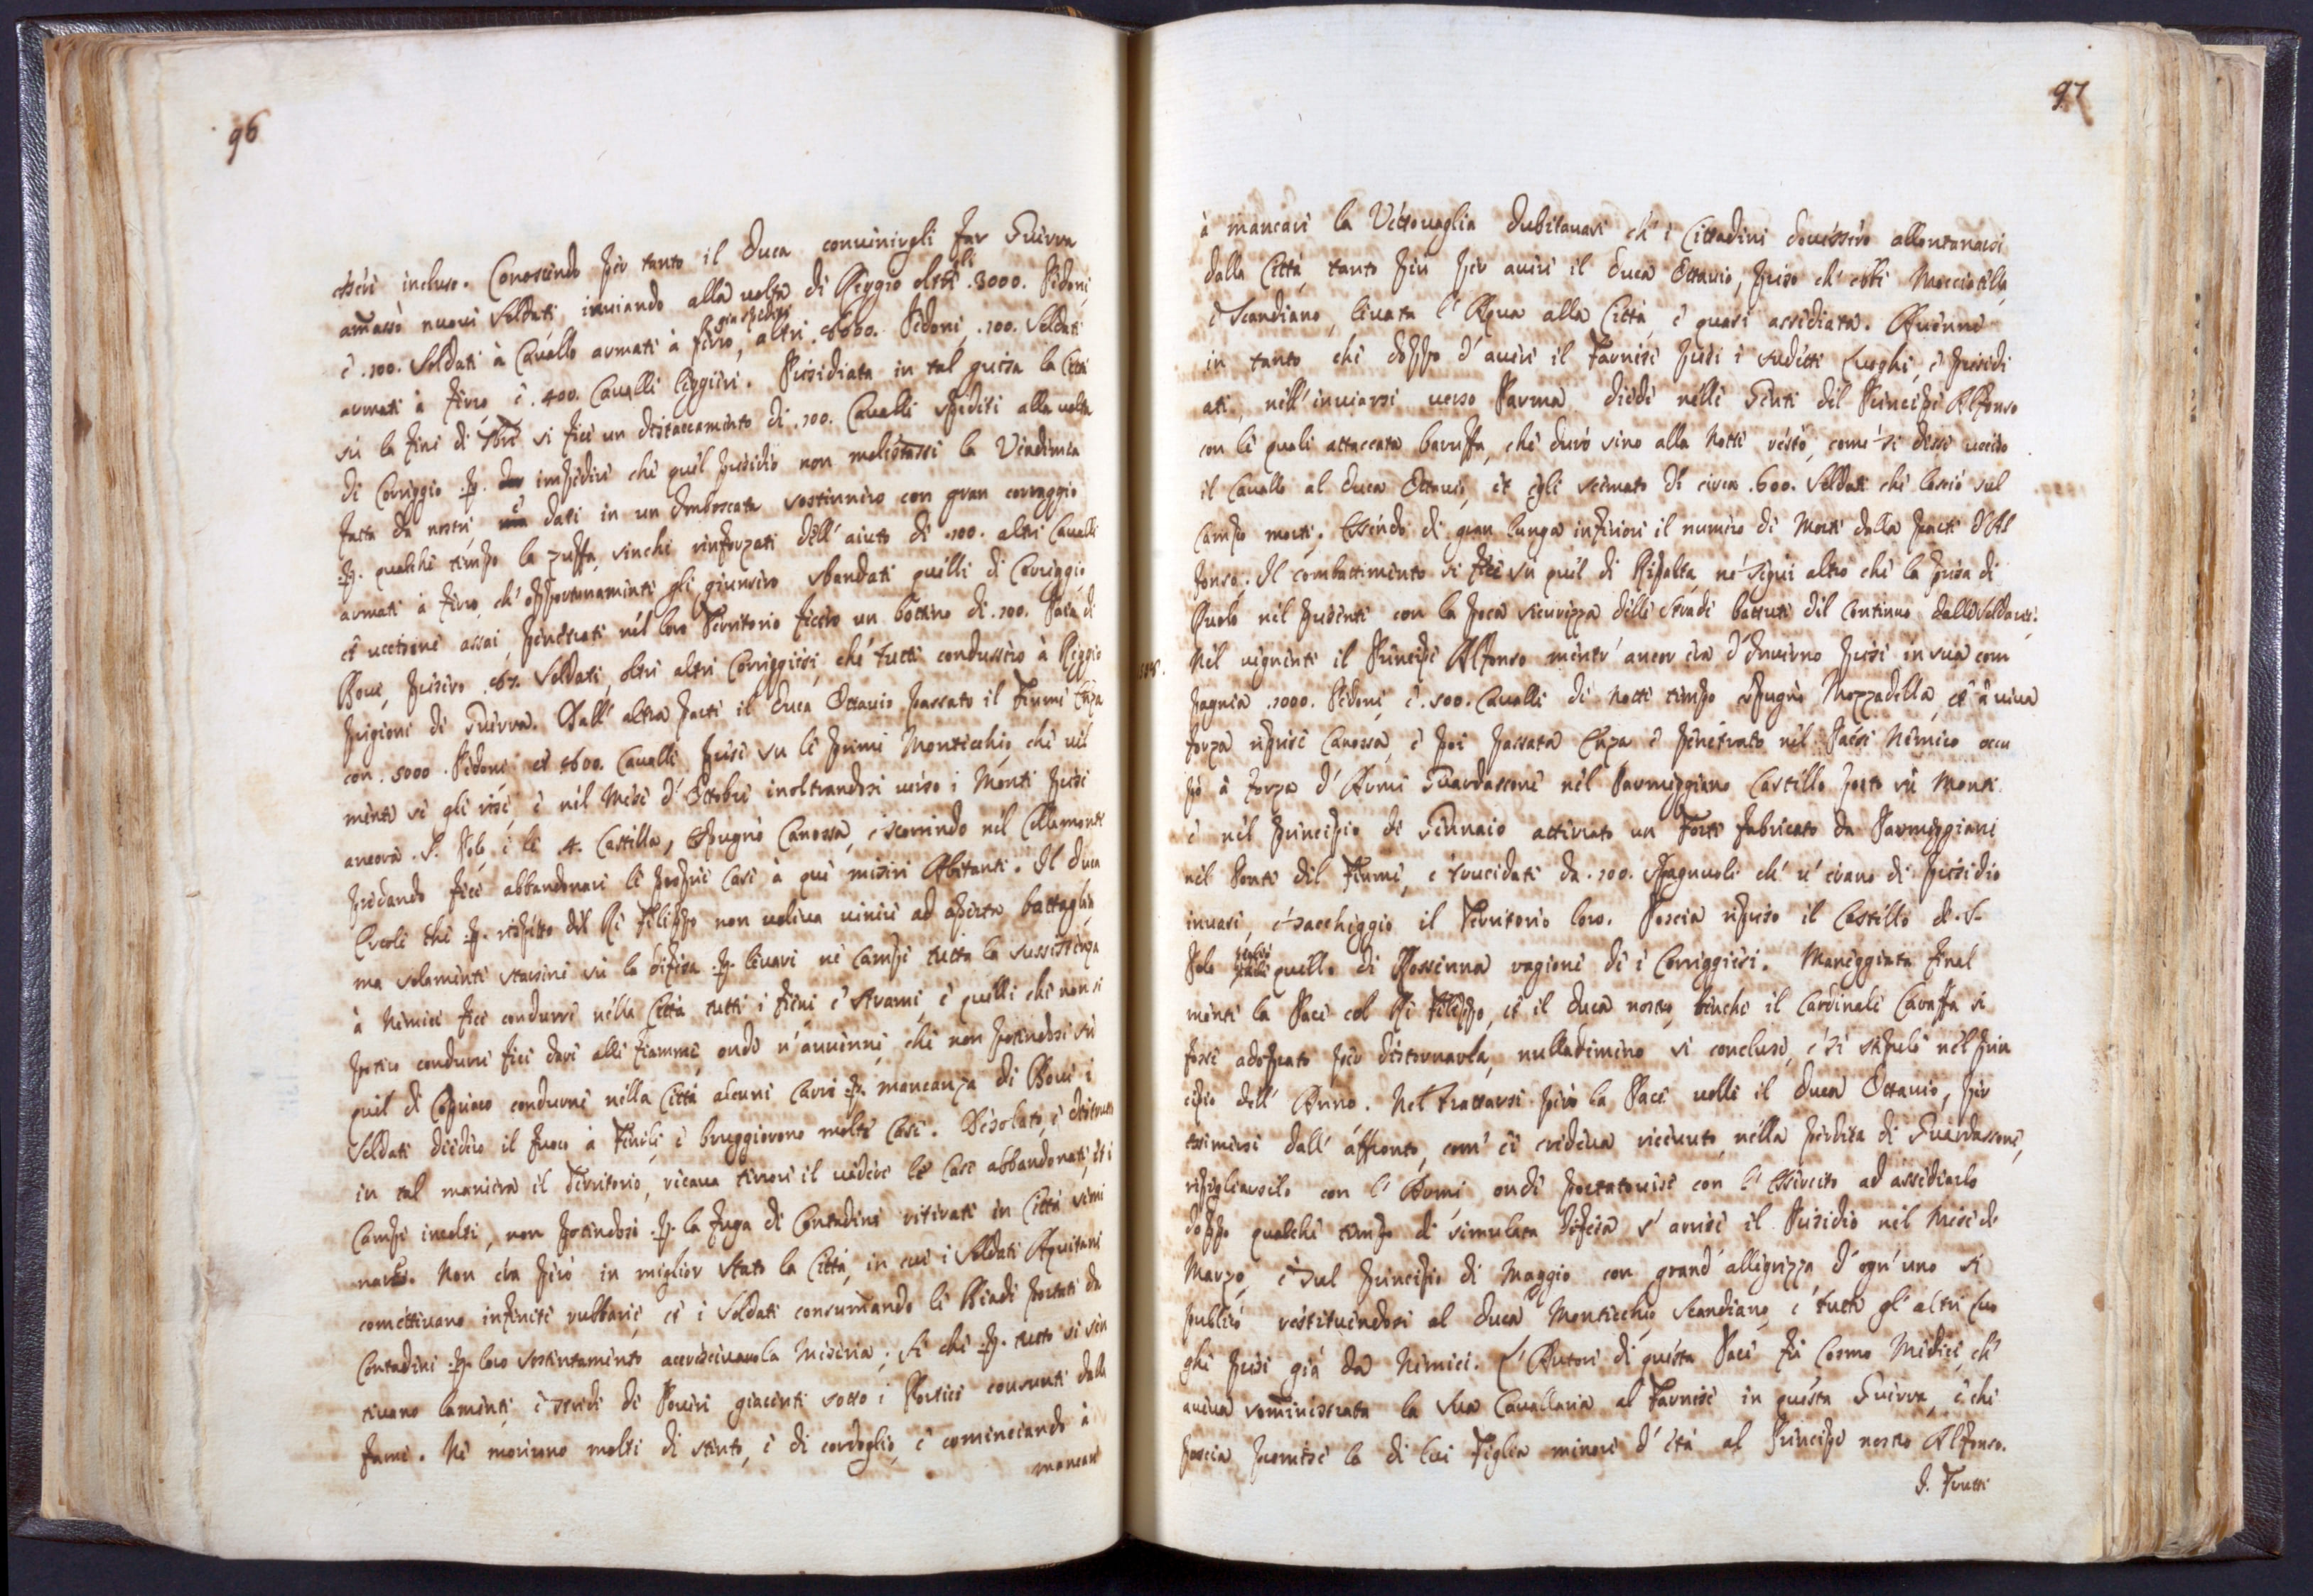 96
essere incluso. Conoscendo per tanto il Duca convenirgli far Guerra
amassò nuovi Soldati inviando alla volta di Reggio oltre gli .3000. Pedoni,
è .100. Soldati à Cavallo armati à ferro, già spediti altri Pedoni, .100. Soldati
armati à ferro, è .400. Cavalli leggieri. Presidiata in tal guisa la Città
sù la fine di 7bre si fece un distaccamento di .100. Cavalli spediti alla volta
di Correggio p. impedire che quel presidio non molestasse la Vindimia
fatta da nostri, è dati in un Imboscata sostennero con gran corraggio
p. qualche tempo la zuffa, sinche rinforzati dell'aiuto di .100. altri Cavalli
armati à ferro, ch'opportunamente gli giunsero sbandati quelli di Correggio,
et uccisone assai, penetrati nel loro Territorio fecero un bottino di .100. Paia di
Bovi, presero Soldati, oltre altri Correggiesi, che tutti condussero à Reggio
prigioni di Guerra. Dall'altra parte il Duca Ottavio passato il Fiume Enza
con .5000. Pedoni et Cavalli prese su le prime Montecchio, che vil
mente se gli rese, è nel Mese d'Ottobre inoltrandosi verso i Monti prese
ancora .S. Polo, è le .4. Castella, espugnò Canossa, è scorrendo nel
predando fece abbandonare le proprie Case à que' miseri Abitanti. Il Duca
Ercole che p. rispetto del Rè Filippo non voleva venire ad aperta battaglia
ma solamente starsene sù la difesa p. levare ne' Campi tutta la sussistenza
à Nemici fece condurre nella Città tutti i fieni è Strami, è quelli che non si
potero condurre fece dare alle fiamme, onde n'avvenne, che non potendosi sù
quel di condurne nella Città alcuni Carri p. mancanza di Bovi i
Soldati diedero il fuoco à Fenili, è bruggiorono molte Case. Desolato, è distrutto
in tal maniera il Territorio, recava terrore il vedere le Case abbandonate, et i
Campi incolti, non potendosi p. la fuga di Contadini ritirati in Città semi
narli. Non era però in miglior stato la Città, in cui i Soldati Aquitani
comettevano infinite rubbarie, et i Soldati consumando le Biade portate da
Contadini p. loro sostentamento accrescevano la Miseria; Si che p. tutto si sen
tivano lamenti, è stridi di Poveri giacenti sotto i Portici consunti dalla
fame. Ne morirono molti di stento, è di cordoglio, è cominciando à
mancare
97
à mancare la Vettovaglia dubitavasi ch'i Cittadini dovessero allontanarsi
dalla Città, tanto più per avere il Duca Ottavio, preso ch'ebbe
è Scandiano, levata l'Aqua alla Città, è quasi assediata. Avenne
in tanto che doppo d'avere il Farnese presi i sudetti Luoghi, è presidi
ati, nell'inviarsi verso Parma diede nelle Genti del Principe Alfonso
con le quali attaccata baruffa, che durò sino alla Notte restò, come si disse ucciso
il Cavallo al Duca Ottavio, et egli scemato di circa .600. Soldati che lasciò sul
Campo morti. Essendo di gran lunga inferiore il numero di Morti dalla parte d'Al
fonso. Il combattimento si fece su quel di Rivalta, ne seguì altro che la presa di
nel presente con la poca sicurezza delle Strade battute del continuo dalle Soldatesche.
Nel vegnente il Principe Alfonso mentr'ancor era d'Inverno prese in sua com
pagnia .1000. Pedoni, è .500. Cavalli di Notte tempo espugnò Mozzadella, et à viva
forza riprese Canossa, è poi passata Enza è penetrato nel Paese Nemico occu
pò à forza d'Armi Guardassone nel Parmeggiano Castello posto sù Monti.
è nel principio di Gennaio atterrato un Forte fabricato da Parmeggiani
nel Ponte del Fiume, è trucidati da .100. Spagnuoli ch'v'erano di presidio
invase, è sacchiggiò il Territorio loro. Poscia ripreso il Castello di .S.
Polo quello di Rossenna ragione di i Correggiesi. Maneggiata final
mente la Pace col Rè Filippo, et il Duca nostro, benche il Cardinale Caraffa si
fosse adoprato per disturnarla, nulladimeno si concluse, è si stipulò nel prin
cipio dell'Anno. Nel trattarsi però la Pace volle il Duca Ottavio, per
esimersi dall'affronto, com'ei credeva ricevuto nella perdita di Guardassone,
ripigliarselo con l'Armi, onde portatovisi con l'Essercito ad assediarlo
doppo qualche tempo di simulata difesa s'arrese il Presidio nel Mese di
Marzo, è sul principio di Maggio con grand'allegrezza d'ogn'uno si
publicò restituendosi al Duca Montecchio Scandiano, è tutti gl'altri Luo
ghi presi già da Nemici. L'Autore di questa Pace fu Cosmo Medici, ch'
aveva somministrata la sua Cavallaria al Farnese in questa Guerra, è che
poscia promise la di lui Figlia minore d'età al Principe nostro Alfonso.